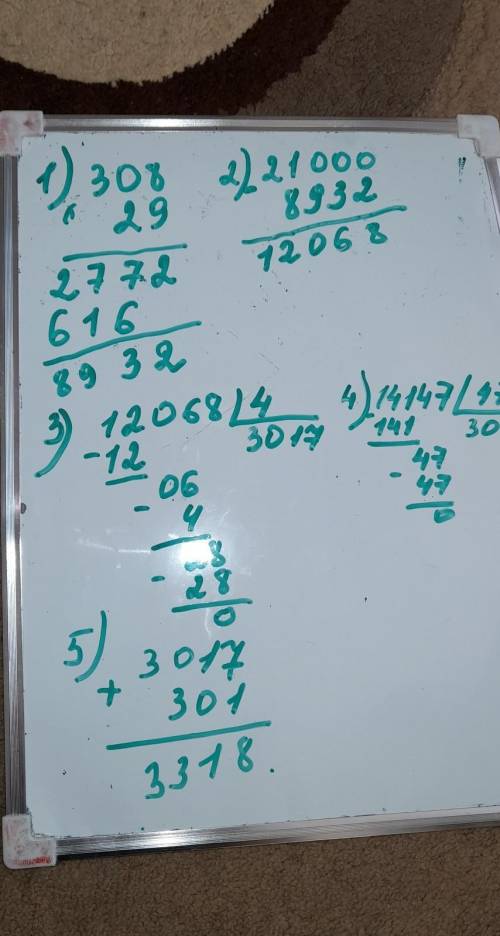 1) 308
× 29
2772
616
8932
2) - 21000
8932
12068
3) 12068 | 4
- 12 3017
- 06
4
- 28
28
0
4) - 14147 | 47
141 30
- 47
47
0
5) 3017
+ 301
3318.